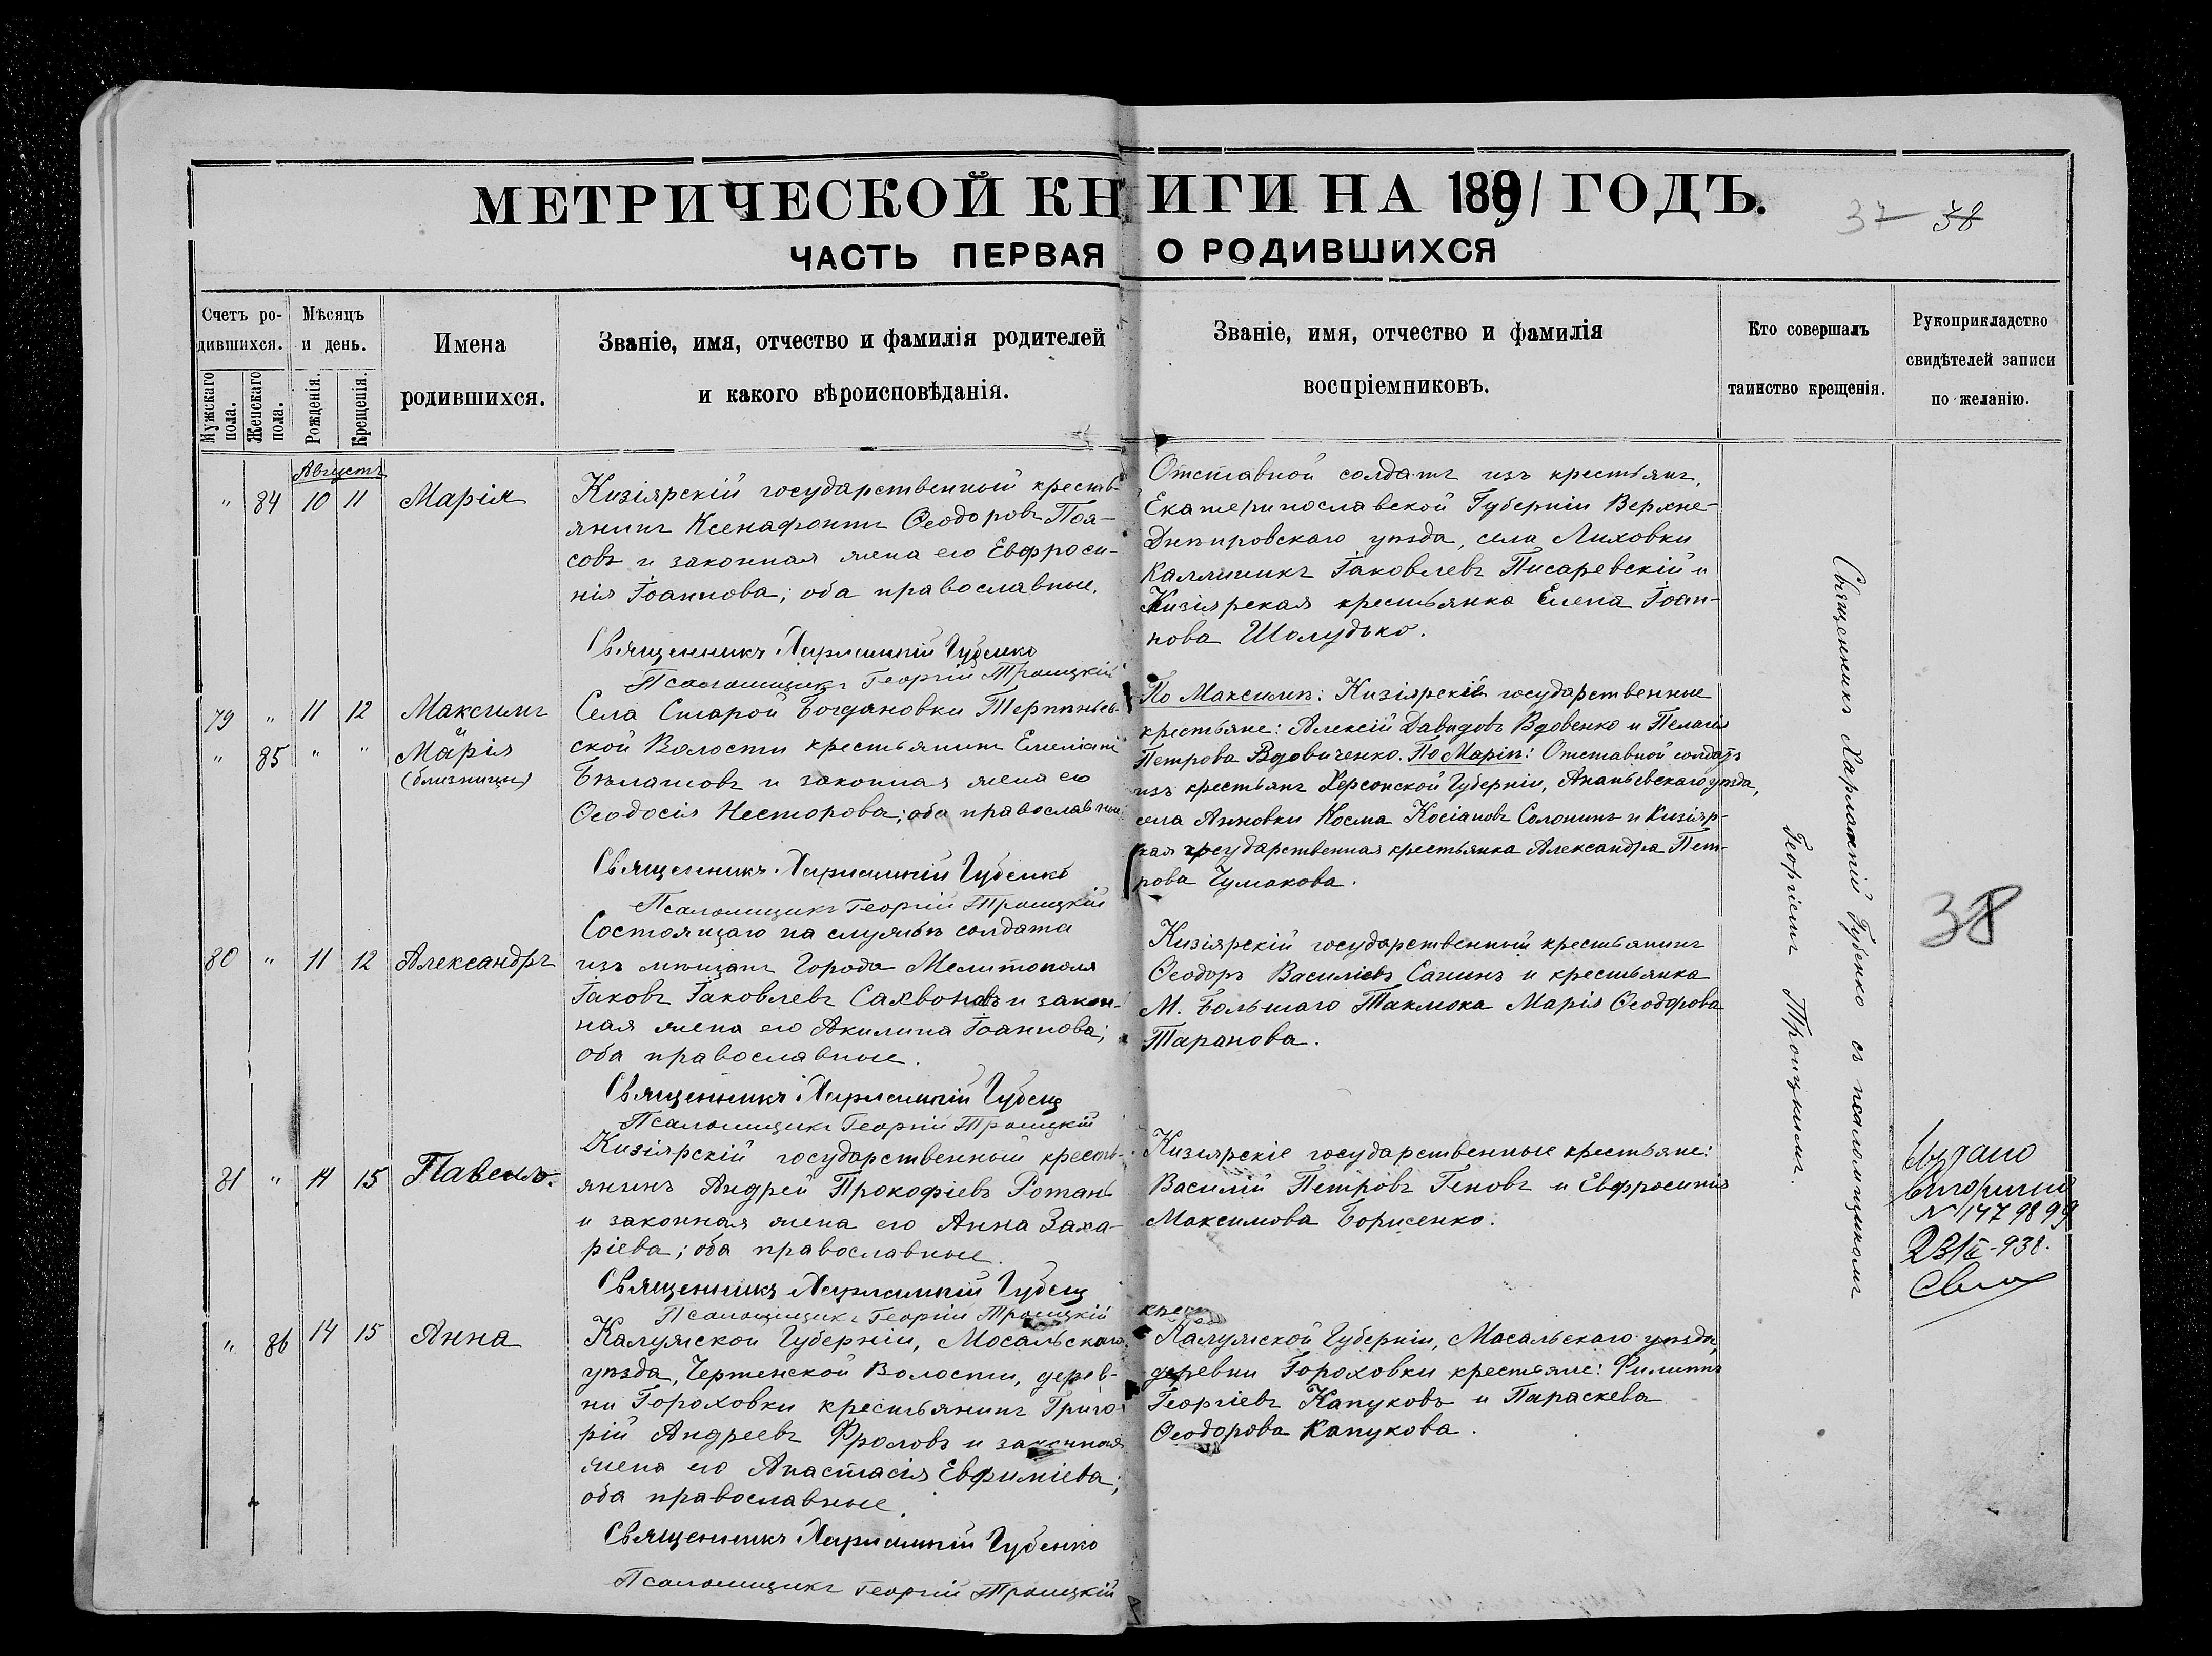 МЕТРИЧЕСКОЙ КНИГИ НА 1891 ГОДЪ.
37 38
ЧАСТЬ ПЕРВАЯ О РОДИВШИХСЯ
Счетъ родившихся.
Мужскаго пола.
Женскаго пола.
Мѣсяцъ и день.
Рожденія.
Крещенія.
Имена
родившихся.
Званіе, имя, отчество и фамилія родителей
и какого вѣроисповѣданія.
Званіе, имя, отчество и фамилія
воспріемниковъ.
Кто совершалъ
таинство крещенія.
Рукоприкладство
свидѣтелей записи
по желанію.
Августъ
" 84 10 11 Марія
Кизіярскій государственный кресть-
янинъ Ксенафонтъ Ѳеодоровъ Поя-
совъ и законная жена его Евфроси-
нія Іоаннова; оба православные.
Священникъ Харлампій Губенко
Псаломщикъ Георгій Троицкій
Отставной солдатъ изъ крестьянъ,
Екатеринославской Губерніи Верхне-
Днѣпровскаго уѣзда, села Лиховки
Каллиникъ Іаковлевъ Писаревскій и
Кизіярская крестьянка Елена Іоан-
нова Шолудько.
79 " 11 12 Максимъ
и
" 85 " " Марія
(близнецы)
Села Старой Богдановки Терпѣньев-
ской Волости крестьянинъ Емеліанъ
Бѣлашовъ и законная жена его
Ѳеодосія Несторова; оба православные.
Священникъ Харлампій Губенко
Псаломщикъ Георгій Троицкій
По Максимѣ: Кизіярскіе государственные
крестьяне: Алексій Давидовъ Вдовенко и Пелагія
Петрова Вдовиченко. По Маріи: Отставной солдатъ
изъ крестьянъ Херсонской Губерніи, Ананьевскаго уѣзда,
села Анновки Косма Косіановъ Солонинъ и Кизіяр-
кая государственная крестьянка Александра Пет-
рова Чумакова.
80 " 11 12 Александръ
Состоящаго на службѣ солдата
изъ мѣщанъ Города Мелитополя
Іаковъ Іаковлевъ Сахвоновъ и закон-
ная жена его Акилина Іоаннова;
оба православные.
Священникъ Харлампій Губенко
Псаломщикъ Георгій Троицкій
Кизіярскій государственный крестьянинъ
Ѳеодоръ Василіевъ Санинъ и крестьянка
М. Большаго Такмока Марія Ѳеодорова
Таранова.
81 " 14 15 Павелъ.
Кизіярскій государственный кресть-
янинъ Андрей Прокофіевъ Ротань
и законная жена его Анна Заха-
ріева; оба православные.
Священникъ Харлампій Губенко
Псаломщикъ Георгій Троицкій
Кизіярскіе государственные крестьяне:
Василій Петровъ Геновъ и Евфросинія
Максимова Борисенко.
" 86 14 15 Анна
Калужской Губерніи, Мосальскаго
уѣзда, Чертенской Волости, дерев-
ни Гороховки крестьянинъ Григо-
рій Андреевъ Фроловъ и законная
жена его Анастасія Евфиміева;
оба православные.
Священникъ Харлампій Губенко
Псаломщикъ Георгій Троицкій
Калужской Губерніи, Масальскаго уѣзда,
деревни Гороховки крестьяне: Филиппъ
Георгіевъ Капуковъ и Параскева
Ѳеодорова Капукова.
Священникъ Харлампій Губенко съ псаломщикомъ
Георгіемъ Троицкимъ.
38
Выдано
вторично
N 1479899